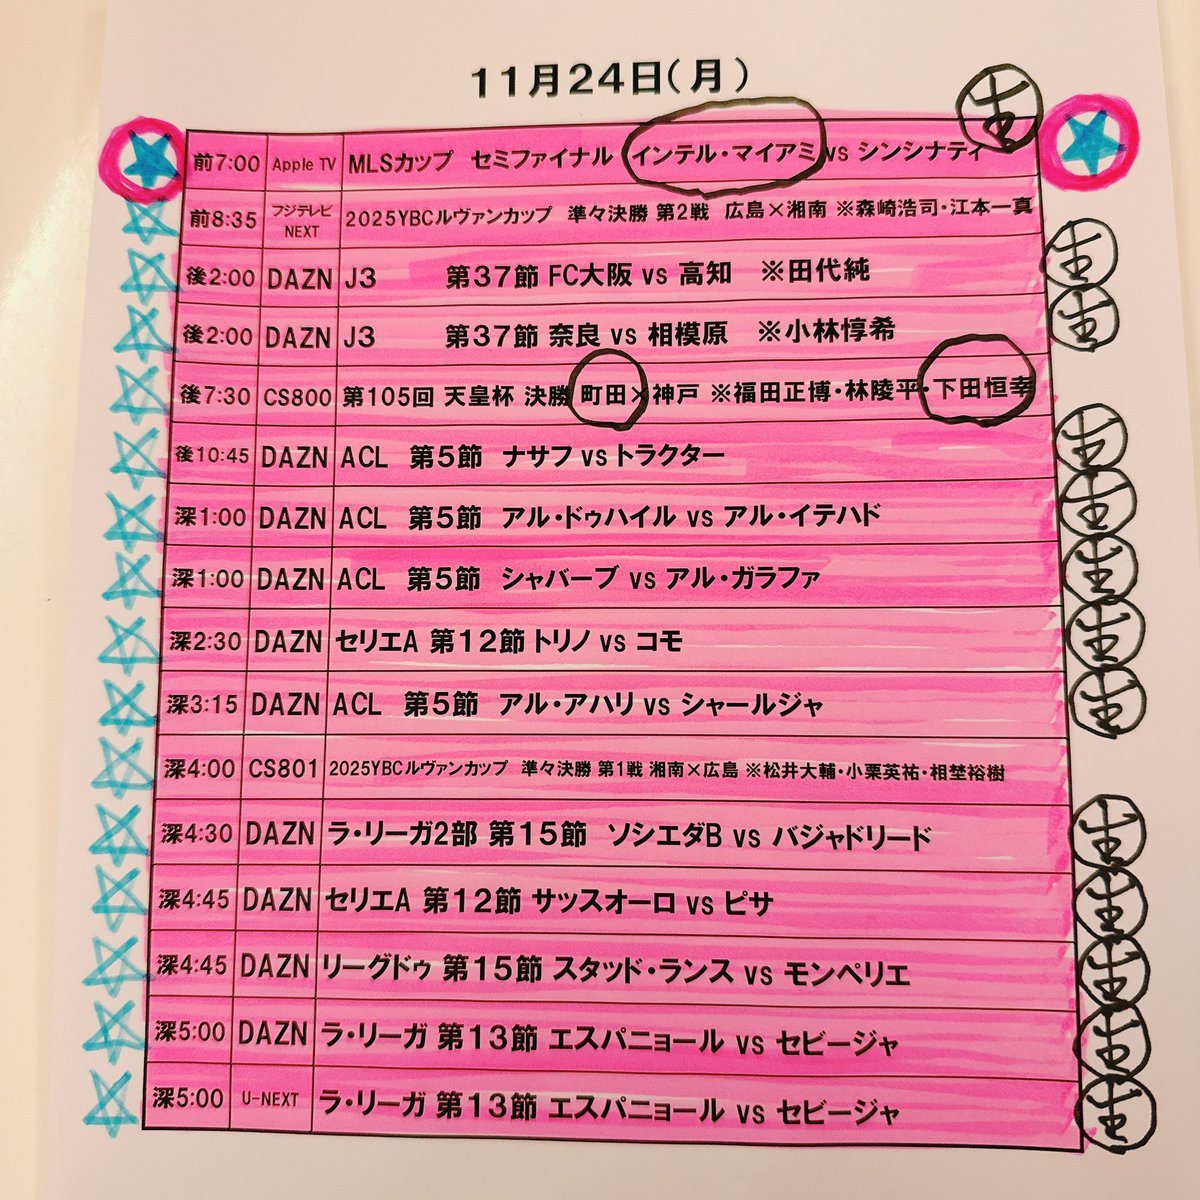 11月24日(月)
生
前7:00 Apple TV MLSカップ セミファイナル インテル・マイアミ vs シンシナティ
前8:35 フジテレビNEXT 2025YBCルヴァンカップ 準々決勝 第2戦 広島×湘南 ※森崎浩司・江本一真
後2:00 DAZN J3 第37節 FC大阪 vs 高知 ※田代純 生
後2:00 DAZN J3 第37節 奈良 vs 相模原 ※小林惇希 生
後7:30 CS800 第105回 天皇杯 決勝 町田×神戸 ※福田正博・林陵平・下田恒幸
後10:45 DAZN ACL 第5節 ナサフ vs トラクター 生
深1:00 DAZN ACL 第5節 アル・ドゥハイル vs アル・イテハド 生
深1:00 DAZN ACL 第5節 シャバーブ vs アル・ガラファ 生
深2:30 DAZN セリエA 第12節 トリノ vs コモ 生
深3:15 DAZN ACL 第5節 アル・アハリ vs シャールジャ 生
深4:00 CS801 2025YBCルヴァンカップ 準々決勝 第1戦 湘南×広島 ※松井大輔・小栗英祐・相埜裕樹
深4:30 DAZN ラ・リーガ2部 第15節 ソシエダB vs バジャドリード 生
深4:45 DAZN セリエA 第12節 サッスオーロ vs ピサ 生
深4:45 DAZN リーグドゥ 第15節 スタッド・ランス vs モンペリエ 生
深5:00 DAZN ラ・リーガ 第13節 エスパニョール vs セビージャ 生
深5:00 U-NEXT ラ・リーガ 第13節 エスパニョール vs セビージャ 生